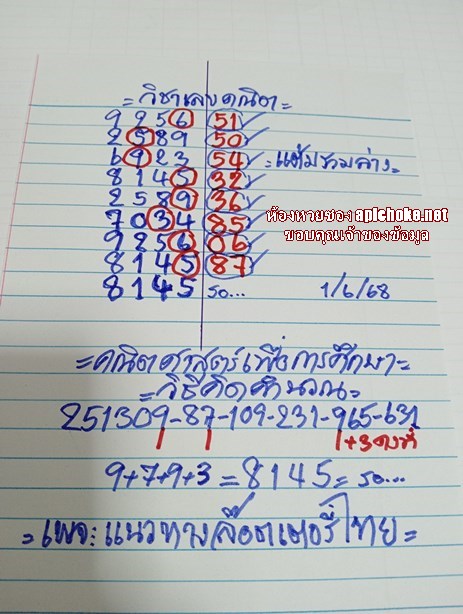 = วิชาเลขคณิต =
9 256 51 ✓
2589 50 ✓
6923 54 ✓ = แต้มรวมล่าง =
8145 32 ✓
2589 36 ✓
7034 85 ✓ ห้องหวยซอง apichoke.net
9856 06 ✓ ขอบคุณเจ้าของข้อมูล
8145 87 ✓
8145 รอ... 1/6/68
= คณิตศาสตร์เพื่อการศึกษา =
= วิธีคิดคำนวณ =
251309-87-109-231-965-631
+3คงที่
9+7+9+3 = 8145 = รอ...
= เพจ: แนวทางล็อตเตอรี่ไทย =